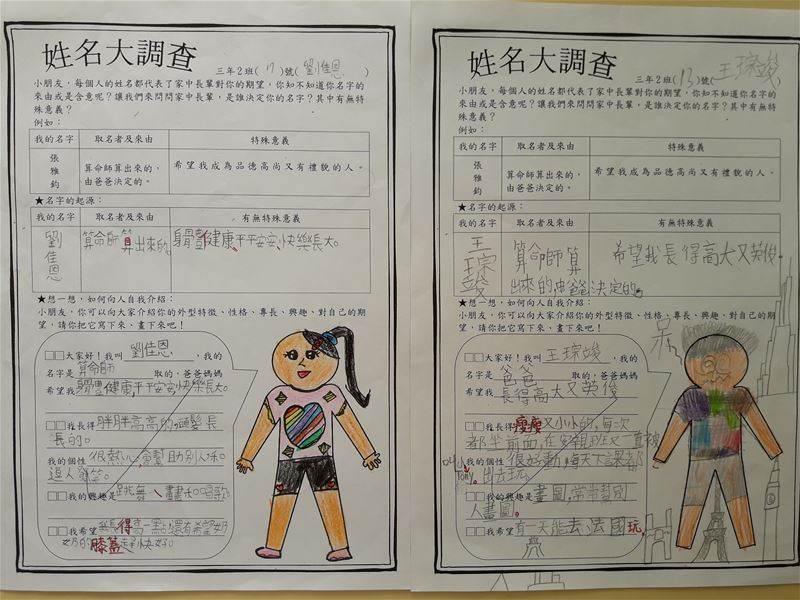 姓名大調查
三年2班(17)號(劉佳恩)
小朋友，每個人的姓名都代表了家中長輩對你的期望，你知不知道你名字的
來由或是含意呢？讓我們來問問家中長輩，是誰決定你的名字？其中有無特
殊意義？
例如：
我的名字 取名者及來由 特殊意義
張雅鈞 算命師算出來的， 希望我成為品德高尚又有禮貌的人。
由爸爸決定的。
★名字的起源：
我的名字 取名者及來由 有無特殊意義
劉佳恩 算命師算出來的 身體健康、平平安安、快樂長大。
★想一想，如何向人自我介紹：
小朋友，你可以向大家介紹你的外型特徵、性格、專長、興趣、對自己的期
望，請你把它寫下來、畫下來吧！
□□大家好！我叫 劉佳恩 ，我的
名字是 算命師 取的，爸爸媽媽
希望我 身體健康，平平安安，快樂長大。
□□我長得胖胖高高的，頭髮長
長的。
我的個性 很熱心，會幫助別人和
逗人發笑。
□□我的興趣是跳舞、畫畫和唱歌
□□我希望 我長得高一點，還有希望奶
奶的膝蓋趕快好。
姓名大調查
三年2班(13)號(王琮竣
小朋友，每個人的姓名都代表了家中長輩對你的期望，你知不知道你名字的
來由或是含意呢？讓我們來問問家中長輩，是誰決定你的名字？其中有無特
殊意義？
例如：
我的名字 取名者及來由 特殊意義
張雅鈞 算命師算出來的， 希望我成為品德高尚又有禮貌的人。
由爸爸決定的。
★名字的起源：
我的名字 取名者及來由 有無特殊意義
王琮竣 算命師算 希望我長得高大又英俊。
出來的，由爸爸決定的。
★想一想，如何向人自我介紹：
小朋友，你可以向大家介紹你的外型特徵、性格、專長、興趣、對自己的期
望，請你把它寫下來、畫下來吧！
□□大家好！我叫 王琮竣 ，我的
名字是 爸爸 取的，爸爸媽媽
希望我 長得高大又英俊
□□我長得瘦瘦又小小的，每次
都坐前面，在安親班又一直被
叫小
Tony。
我的個性 很好動，每天下課都
出去玩
□□我的興趣是畫圖，常常幫別
人畫圖。
□□我希望有一天能去法國玩。
呆